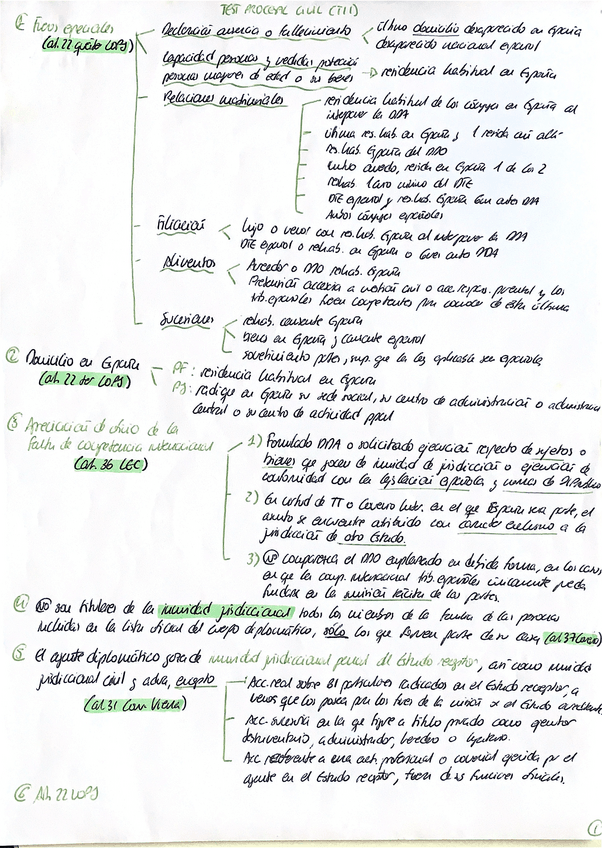 TEST PROCESAL CIVIL (T11)
① Foros especiales
(art. 22 quáter LOPJ)
Declaración ausencia o fallecimiento
último domicilio desaparecido en España
desaparecido nacional español
Capacidad personas y medidas protección
personas mayores de edad o sus bienes → residencia habitual en España
Relaciones matrimoniales
residencia habitual de los cónyuges en España al
interponer la DDA
última res. hab. en España y 1 resida aún allí
res. hab. España del DDO
mutuo acuerdo, resida en España 1 de los 2
res. hab. 1 año mínimo del DTE
DTE español y res. hab. España 6m antes DDA
Ambos cónyuges españoles
Filiación
hijo o menor con res. hab. España al interponer la DDA
DTE español o res. hab. en España o 6 mes antes DDA
Alimentos
Acreedor o DDO res. hab. España
Pretensión accesoria a estado civil o acc. respons. parental y los
trib. españoles fuesen competentes para conocer de esta última
Sucesiones
res. hab. causante España
bienes en España y causante español
sometimiento partes, sup. que la ley aplicable sea española
② Domicilio en España
(art. 22 ter LOPJ)
PF: residencia habitual en España
PJ: radique en España su sede social, su centro de administración o administración
central o su centro de actividad ppal
③ Apreciación de oficio de la
falta de competencia internacional
(art. 36 LEC)
1) Formulado DDA o solicitado ejecución respecto de sujetos o
bienes que gocen de inmunidad de jurisdicción o ejecución de
conformidad con la legislación española y normas de DI Público
2) En virtud de TT o Convenio Inter. en el que España sea parte, el
asunto se encuentre atribuido con carácter exclusivo a la
jurisdicción de otro Estado.
3) NO comparezca el DDO emplazado en debida forma, en los casos
en que la comp. internacional trib. españoles únicamente pueda
fundarse en la sumisión tácita de las partes.
④ NO son titulares de la inmunidad jurisdiccional todos los miembros de la familia de las personas
incluidas en la lista oficial del cuerpo diplomático, sólo los que formen parte de su casa (art. 37 Conv)
⑤ El agente diplomático goza de inmunidad jurisdiccional penal del Estado receptor, así como inmunidad
jurisdiccional civil y adva, excepto
(art. 31 Conv Viena)
Acc. real sobre BI particulares radicados en el Estado receptor, a
menos que los posea por los fines de la misión x el Estado acreditante.
Acc. sucesoria en la que figure a título privado como ejecutor
testamentario, administrador, heredero o legatario.
Acc. referente a una act. profesional o comercial ejercida por el
agente en el Estado receptor, fuera de sus funciones oficiales.
⑥ Art. 22 LOPJ
①